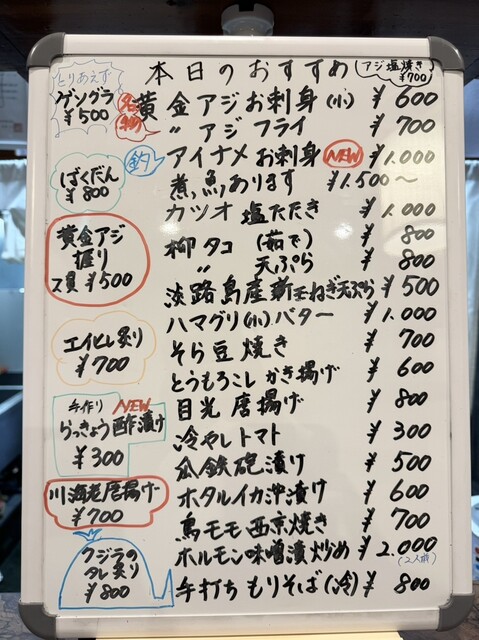 本日のおすすめ
アジ塩焼き
¥700
とりあえず
ゲソグラ
¥500
名物
黄金アジお刺身(小) ¥600
〃 アジフライ ¥700
釣
アイナメお刺身 NEW ¥1.000
煮魚あります ¥1.500〜
カツオ塩たたき ¥1.000
柳タコ(茹で) ¥800
〃 天ぷら ¥800
淡路島産新玉ねぎ天ぷら ¥500
ハマグリ(小)バター ¥1.000
そら豆焼き ¥700
とうもろこしかき揚げ ¥600
目光唐揚げ ¥800
冷やしトマト ¥300
瓜鉄砲漬け ¥500
ホタルイカ沖漬け ¥600
鳥モモ西京焼き ¥700
ホルモン味噌漬炒め ¥2.000
(2人前)
手打ちもりそば(冷) ¥800
ばくだん
¥800
黄金アジ
握り
2貝 ¥500
エイヒレ炙り
¥700
手作り NEW
らっきょう酢漬け
¥300
川海老唐揚げ
¥700
クジラの
タレ炙り
¥800